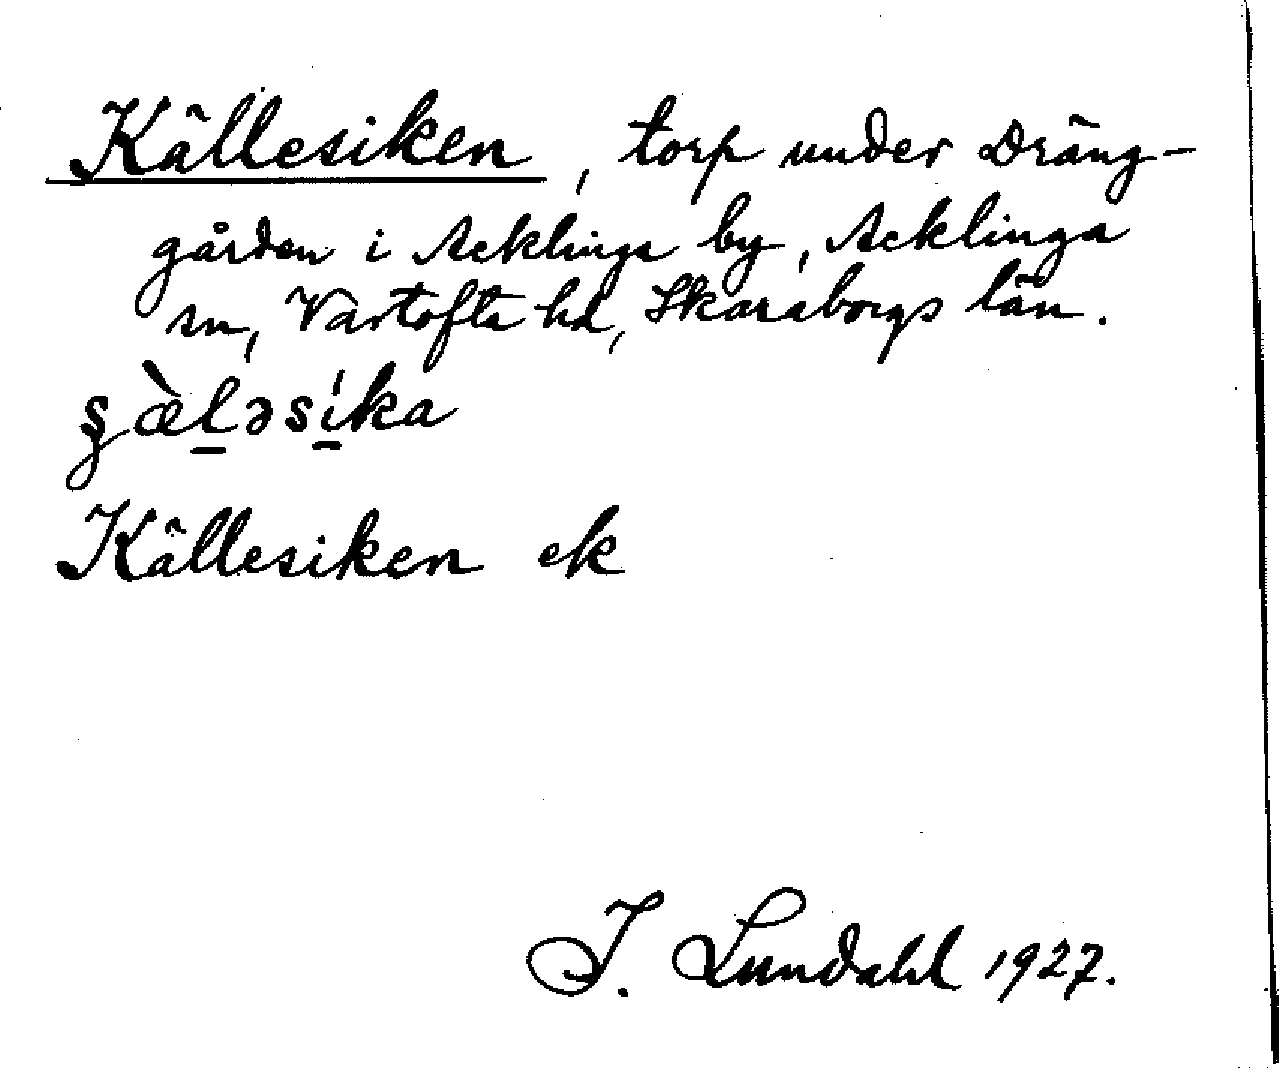 Källesiken, torp under Dräng-
gården i Acklinga by, Acklinga
sn, Vartofta hd, Skaraborgs län.
ʂæ̀l̠əsi̠̍ka
Källesiken ek
I. Lundahl 1927.